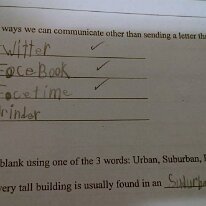 ways we can communicate other than sending a letter th
Twitter
FaceBook
Facetime
Grinder
blank using one of the 3 words: Urban, Suburban,
very tall building is usually found in an Suburba